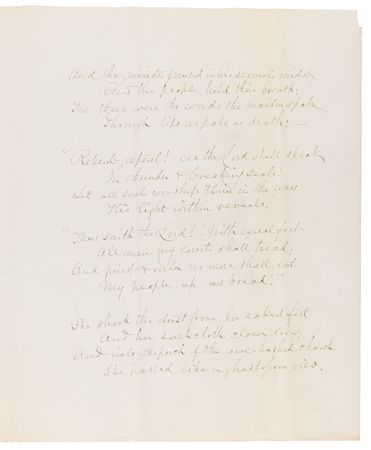 And the minister paused in his sermon's midst,
And the people held their breath,
For these were the words the maiden spoke
Through lips as pale as death; —
"Repent, repent! ere the Lord shall speak
In thunder & breaking seals!
Let all souls worship Him in the way
His light within reveals.
"Thus saith the Lord! — With equal feet
All men my courts shall tread,
And priest & ruler no more shall eat
My people up as bread!"
She shook the dust from her naked feet
And her sackcloth closer drew,
And into the porch of the awe-hushed church
She passed like a ghost from view.